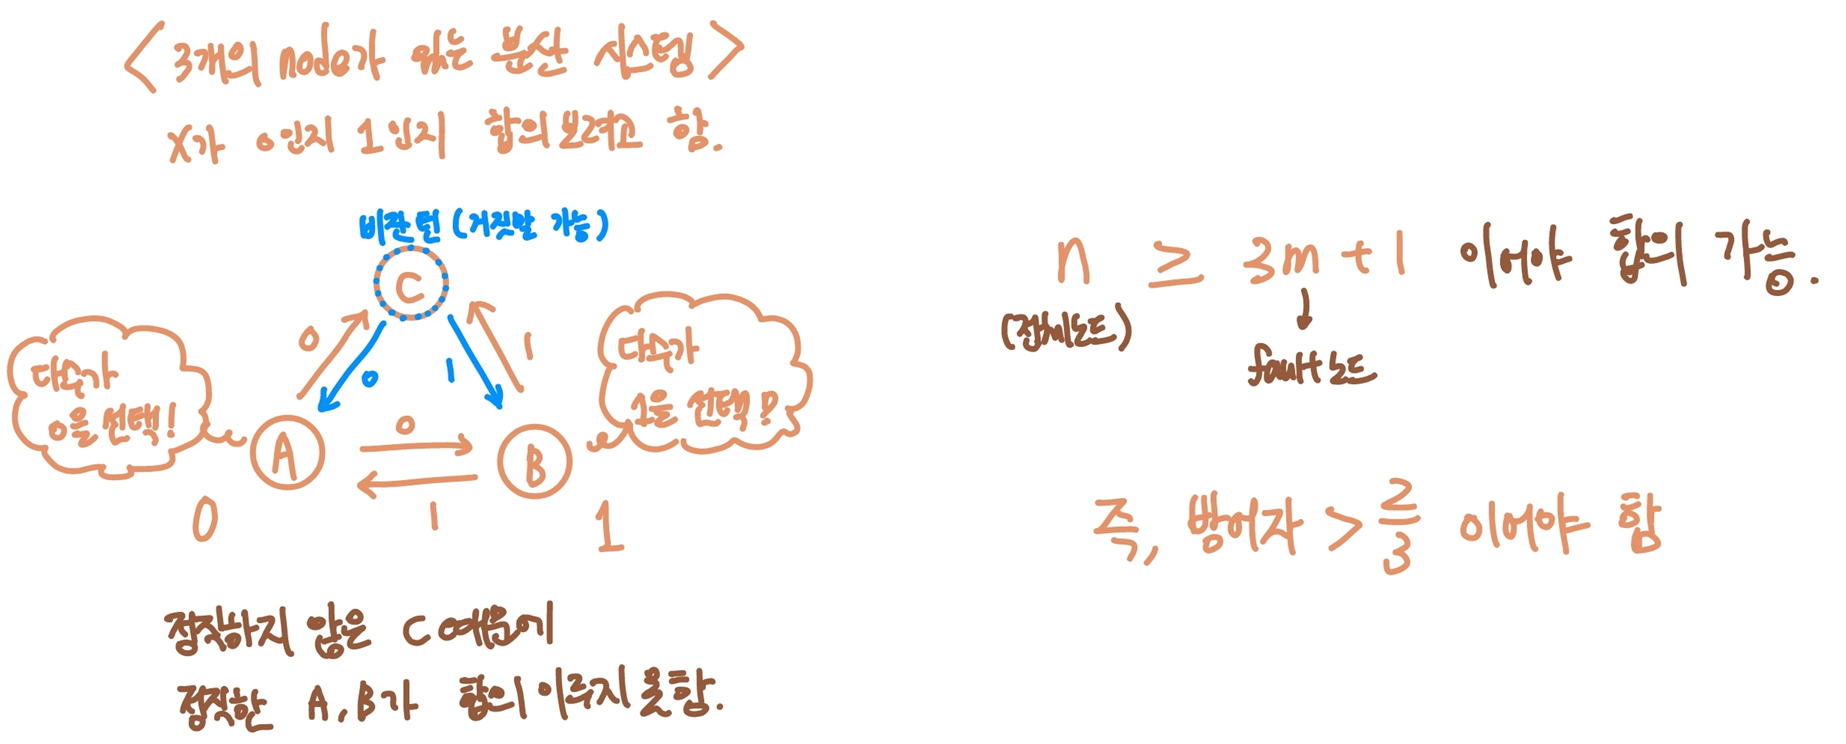 <3개의 node가 있는 분산 시스템>
X가 0인지 1인지 합의보려고 함.
비잔틴 (거짓말 가능)
C
0
0
1
1
다수가
0을 선택!
다수가
1을 선택!
A
0
B
1
0
1
정직하지 않은 C 때문에
정직한 A, B가 합의 이루지 못함.
n ≥ 3m + 1 이어야 합의 가능.
(전체노드)
↓
fault 노드
즉, 방어자 > 2/3 이어야 함